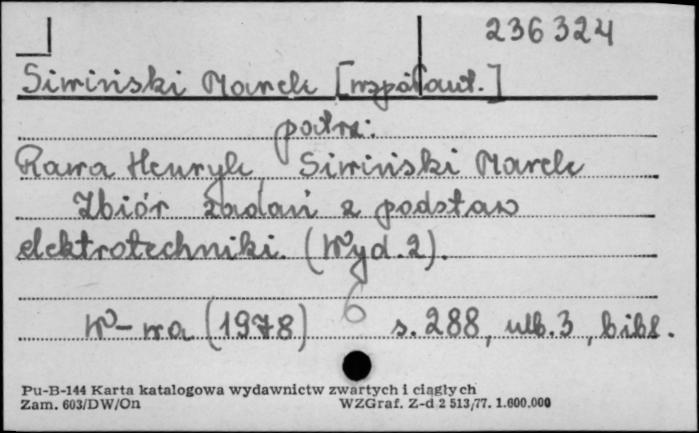 236324
Siwiński Marek [współaut.]
patrz:
Rawa Henryk Siwiński Marek
Zbiór zadań z podstaw
elektrotechniki. (Wyd. 2).
W-wa (1978) 6 s. 288, nlb. 3, bibl.
Pu-B-144 Karta katalogowa wydawnictw zwartych i ciągłych
Zam. 603/DW/On WZGraf. Z-d 2 513/77. 1.600.000